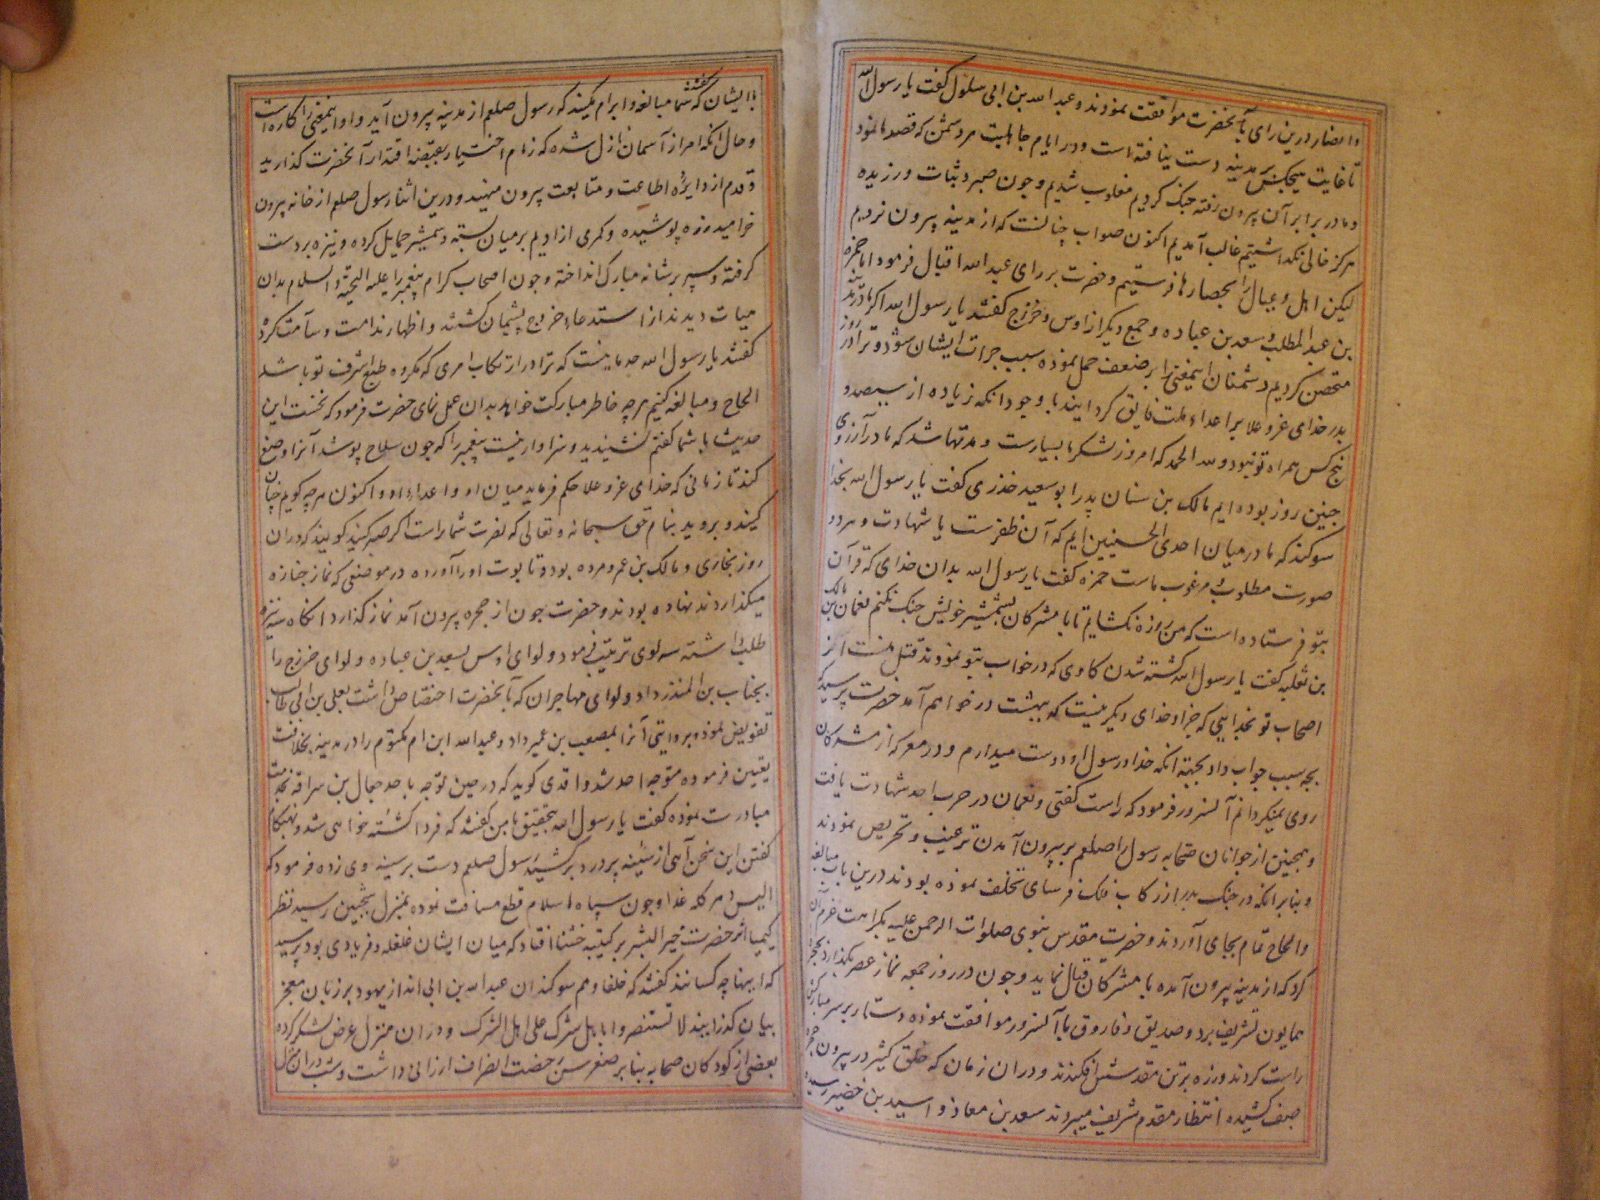 و انصار درین رای بآنحضرت موافقت نمودند و عبد الله بن ابی سلول گفت یا رسول الله
تا غایت هیچکس بمدینه دست نیافته است و در ایام جاهلیت هر دشمن که قصد ما نمود
و ما در برابر آن بیرون رفته جنک کردیم مغلوب شدیم و چون صبر و ثبات ورزیده
مرکز خالی نکذاشتیم غالب آمدیم اکنون صواب چنانست که از مدینه بیرون نرویم
لیکن اهل و عیال را بحصارها فرستیم و حضرت بر رای عبد الله اقبال فرمود اما حمزه
بن عبد المطلب و سعد بن عباده و جمع دیگر از اوس و خزرج گفتند یا رسول الله اگر ما در مدینه
متحصن کردیم دشمنان اینمعنی را بر ضعف حمل نموده سبب جرات ایشان شود و ترا در روز
بدر خدای عز و علا بر اعداء ملت فایق کردانید با وجود انکه زیاده از سیصد و
پنج کس همراه تو نبود و لله الحمد که امروز لشکر ما بسیارست و مدتها شد که ما در آرزوی
چنین روز بوده ایم مالک بن سنان پدر ابو سعید خذری گفت یا رسول الله بخدا
سوکند که ما در میان احدی الحسنیین ایم که آن ظفرست یا شهادت و هر دو
صورت مطلوب و مرغوب ماست حمزه گفت یا رسول الله بدان خدای که قرآن
بتو فرستاده است که من روزه نکشایم تا با مشرکان بشمشیر خویش جنک نکنم نعمان بن مالک
بن ثعلبه گفت یا رسول الله کشته شدن گاوی که در خواب بتو نمودند قتل منست از
اصحاب تو بخدایی که جز او خدای دیگر نیست که ببهشت در خواهم آمد حضرت پرسید که
بچه سبب جواب داد بجهة انکه خدا و رسول او دوست میدارم و در معرکه از مشرکان
روی نمیکردانم آنسرور فرمود که راست گفتی و نعمان در حرب احد شهادت یافت
و همچنین از جوانان صحابه رسول را صلعم بر بیرون آمدن ترغیب و تحریص نمودند
و بنابر انکه در جنک بدر از رکاب فلک فرسای تخلف نموده بودند درین باب مبالغه
و الحاح تمام بجای آوردند و حضرت مقدس نبوی صلوات الرحمن علیه بکراهت عزم آن
کرد که از مدینه بیرون آمده با مشرکان قتال نماید و چون در روز جمعه نماز عصر بگذارد بحجره
همایون تشریف برد و صدیق و فاروق با آنسرور موافقت نموده دستار بر سر مبارکش
راست کردند و زره بر تن مقدسش افکندند و در ان زمان که خلق کثیر در بیرون حجره
صف کشیده انتظار مقدم شریف میبردند سعد بن معاذ و اسید بن خضیر رسیده
با ایشان گفتند که شما مبالغه و ابرام میکنید که رسول صلعم از مدینه بیرون آید و او اینمعنی را کاره است
و حال انکه امر از آسمان نازل شده که زمام اختیار بقبضه اقتدار آنحضرت گذارید
و قدم از دایرۀ اطاعت و متابعت بیرون منهید و درین اثنا رسول صلعم از خانه بیرون
خرامید زره پوشیده و کمری از ادیم بر میان بسته و شمشیر حمایل کرده و نیزه بر دست
گرفته و سپر بر شانه مبارک انداخته و چون اصحاب کرام پیغمبر را علیه التحیة و السلام بدان
هیات دیدند از استدعاء خروج پشیمان گشتند و اظهار ندامت و سآمت کرد
گفتند یا رسول الله حد ما نیست که ترا در ارتکاب امری که مکروه طبع اشرف تو باشد
الحاح و مبالغه کنیم هر چه خاطر مبارکت خواهد بدان عمل نمای حضرت فرمود که نخست این
حدیث با شما گفتم نشنیدید و سزاوار نیست پیغمبر را که چون سلاح پوشد آنرا وضع
کند تا زمانی که خدای عز و علا حکم فرماید میان او و اعداء او و اکنون هر چه گویم چنان
کنید و بروید بنام حق سبحانه و تعالی که نصرت شما راست اگر صبر کنید گویند که در ان
روز بخاری و مالک بن عمرو مرده بود و تابوت او را آورده در موضعی که نماز جنازه
میگذاردند نهاده بودند و حضرت چون از حجره بیرون آمد نماز گذارد انکاه سه نیزه
طلب داشته سه لوی ترتیب فرمود و لوای اوس بسعد بن عباده و لوای خزرج را
بخباب بن المنذر داد و لوای مهاجران که بآنحضرت اختصاص داشت بعلی بن ابی طالب
تفویض نمود و بروایتی آنرا بمصعب بن عمیر داد و عبد الله ابن ام مکتوم را در مدینه بخلافت
تعیین فرموده متوجه احد شد و اقدی گوید که در حین توجه باحد جعال بن سراقه بخدمت
مبادرت نموده گفت یا رسول الله بتحقیق با من گفتند که فردا کشته خواهی شد و بهنگام
گفتن این سخن آهی از سینه پر درد بر کشید رسول صلعم دست بر سینه وی زده فرمود که
الیس الدهر کله غدا و چون سپاه اسلام قطع مسافت نموده بمنزل شیخین رسید نظر
کیمیا اثر حضرت خیر البشر بر کتیبه خشنا افتاد که میان ایشان غلغله و فریادی بود پرسید
که اینها چه کسانند گفتند که خلفا و هم سوکندان عبد الله بن ابی اند از یهود بر زبان معجز
بیان گذرانیند لا تستنصروا باهل شرک علی اهل الشرک و در ان منزل عرض لشکر کرده
بعضی از کودکان صحابه بنابر صغر سن رخصت انصراف ارزانی داشت و شب در ان منزل